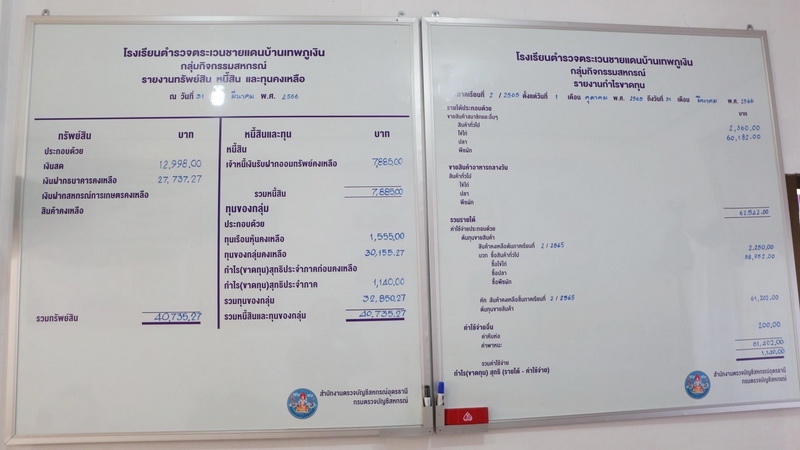 โรงเรียนตำรวจตระเวนชายแดนบ้านเทพภูเงิน
กลุ่มกิจกรรมสหกรณ์
รายงานทรัพย์สิน หนี้สิน และทุนคงเหลือ
ณ วันที่ 31 มีนาคม พ.ศ. 2566
ทรัพย์สิน บาท
ประกอบด้วย
เงินสด 12,998.00
เงินฝากธนาคารคงเหลือ 27,737.27
เงินฝากสหกรณ์การเกษตรคงเหลือ
สินค้าคงเหลือ
รวมทรัพย์สิน 40,735.27
หนี้สินและทุน บาท
หนี้สิน
เจ้าหนี้เงินรับฝากออมทรัพย์คงเหลือ 7,885.00
รวมหนี้สิน 7,885.00
ทุนของกลุ่ม
ประกอบด้วย
ทุนเรือนหุ้นคงเหลือ 1,555.00
ทุนของกลุ่มคงเหลือ 30,155.27
กำไร(ขาดทุน)สุทธิประจำภาคก่อนคงเหลือ
กำไร(ขาดทุน)สุทธิประจำภาค 1,140.00
รวมทุนของกลุ่ม 32,850.27
รวมหนี้สินและทุนของกลุ่ม 40,735.27
สำนักงานตรวจบัญชีสหกรณ์อุดรธานี
กรมตรวจบัญชีสหกรณ์
โรงเรียนตำรวจตระเวนชายแดนบ้านเทพภูเงิน
กลุ่มกิจกรรมสหกรณ์
รายงานกำไรขาดทุน
ภาคเรียนที่ 2 / 2565 ตั้งแต่วันที่ 1 เดือน ตุลาคม พ.ศ. 2565 ถึงวันที่ 31 เดือน มีนาคม พ.ศ. 2566
บาท
รายได้ประกอบด้วย
ขายสินค้าสมาชิกและอื่นๆ
สินค้าทั่วไป 2,360.00
ไข่ไก่ 60,182.00
ปลา
พืชผัก
ขายสินค้าอาหารกลางวัน
สินค้าทั่วไป
ไข่ไก่
ปลา
พืชผัก
รวมรายได้ 62,542.00
ค่าใช้จ่ายประกอบด้วย
ต้นทุนขายสินค้า
สินค้าคงเหลือต้นภาคเรียนที่ 2 / 2565 2,250.00
บวก ซื้อสินค้าทั่วไป 58,952.00
ซื้อไข่ไก่
ซื้อปลา
ซื้อพืชผัก
หัก สินค้าคงเหลือสิ้นภาคเรียนที่ 2 / 2565
ต้นทุนขายสินค้า 61,202.00
ค่าใช้จ่ายอื่น
200.00
ค่าพาหนะ
รวมค่าใช้จ่าย 61,402.00
กำไร(ขาดทุน) สุทธิ (รายได้ - ค่าใช้จ่าย) 1,140.00
สำนักงานตรวจบัญชีสหกรณ์อุดรธานี
กรมตรวจบัญชีสหกรณ์